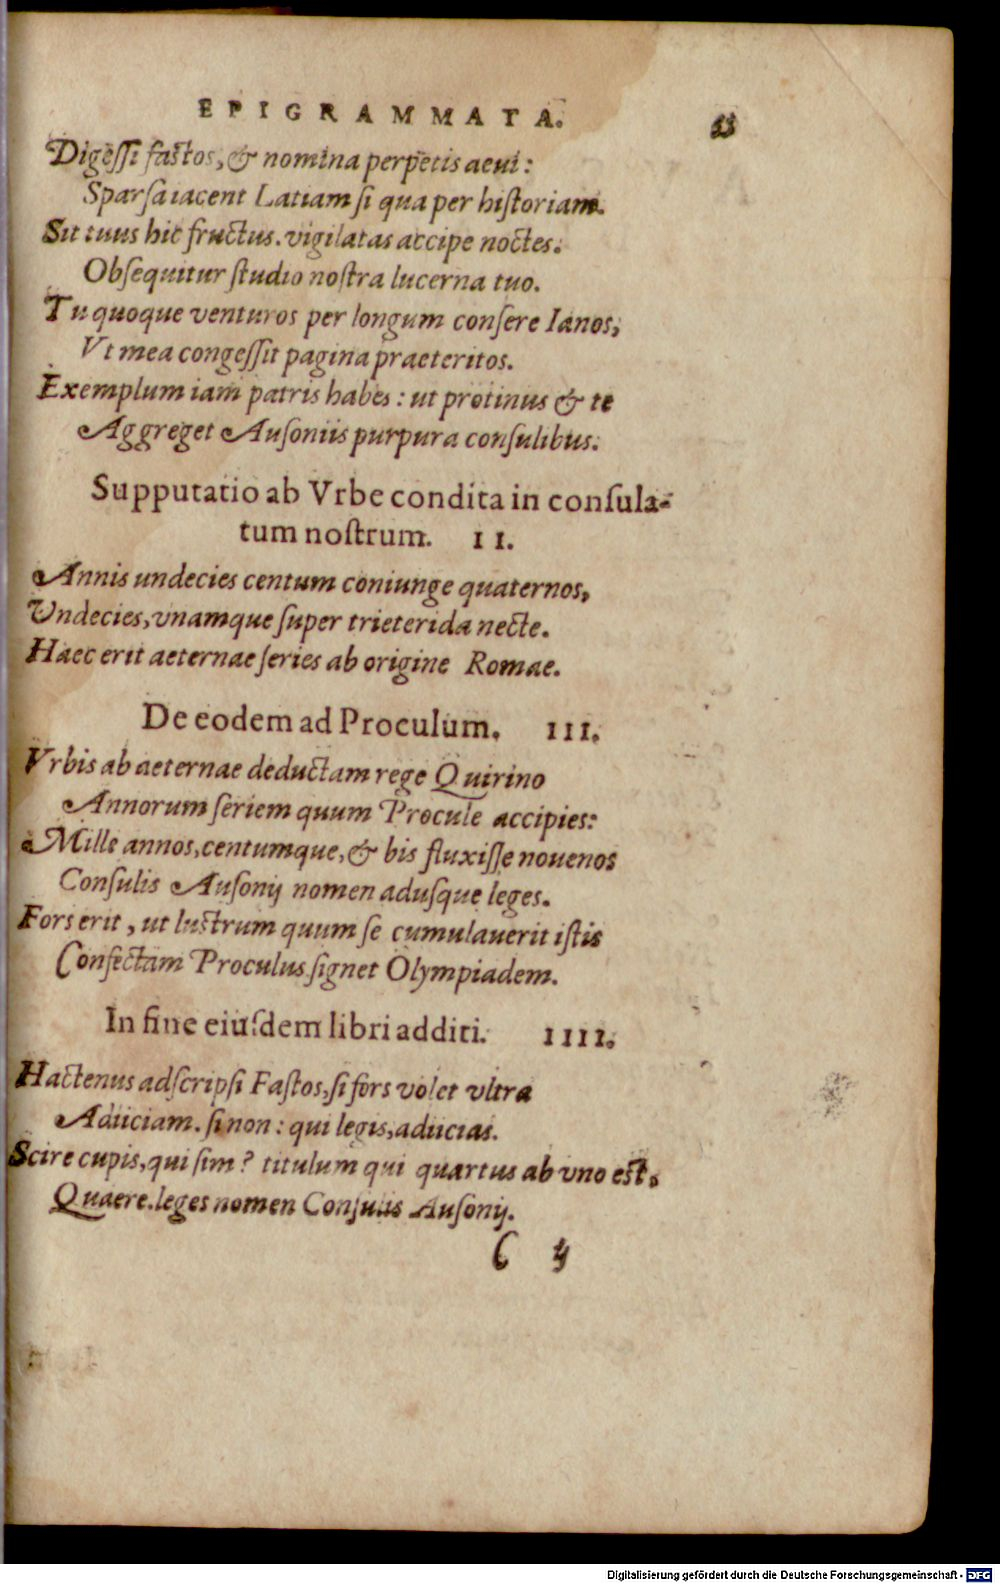 EPIGRAMMATA. 33
Digessi fastos, & nomina perpetis aeui:
Sparsa iacent Latiam si qua per historiam.
Sit tuus hic fructus. vigilatas accipe noctes:
Obsequitur studio nostra lucerna tuo.
Tu quoque venturos per longum consere Ianos,
Vt mea congessit pagina praeteritos.
Exemplum iam patris habes: ut protinus & te
Aggreget Ausoniis purpura consulibus.
Supputatio ab Vrbe condita in consula-
tum nostrum. II.
Annis undecies centum coniunge quaternos,
Vndecies, vnamque super trieterida necte.
Haec erit aeternae series ab origine Romae.
De eodem ad Proculum. III.
Vrbis ab aeternae deductam rege Quirino
Annorum seriem quum Procule accipies:
Mille annos, centumque, & bis fluxisse nouenos
Consulis Ausonij nomen adusque leges.
Fors erit, ut lustrum quum se cumulauerit istis
Confectam Proculus signet Olympiadem.
In fine eiusdem libri additi. IIII.
Hactenus adscripsi Fastos, si fors volet vltra
Adiiciam. si non: qui legis, adiicias.
Scire cupis, qui sim? titulum qui quartus ab vno est,
Quaere. leges nomen Consulis Ausonij.
C ij
Digitalisierung gefördert durch die Deutsche Forschungsgemeinschaft - DFG